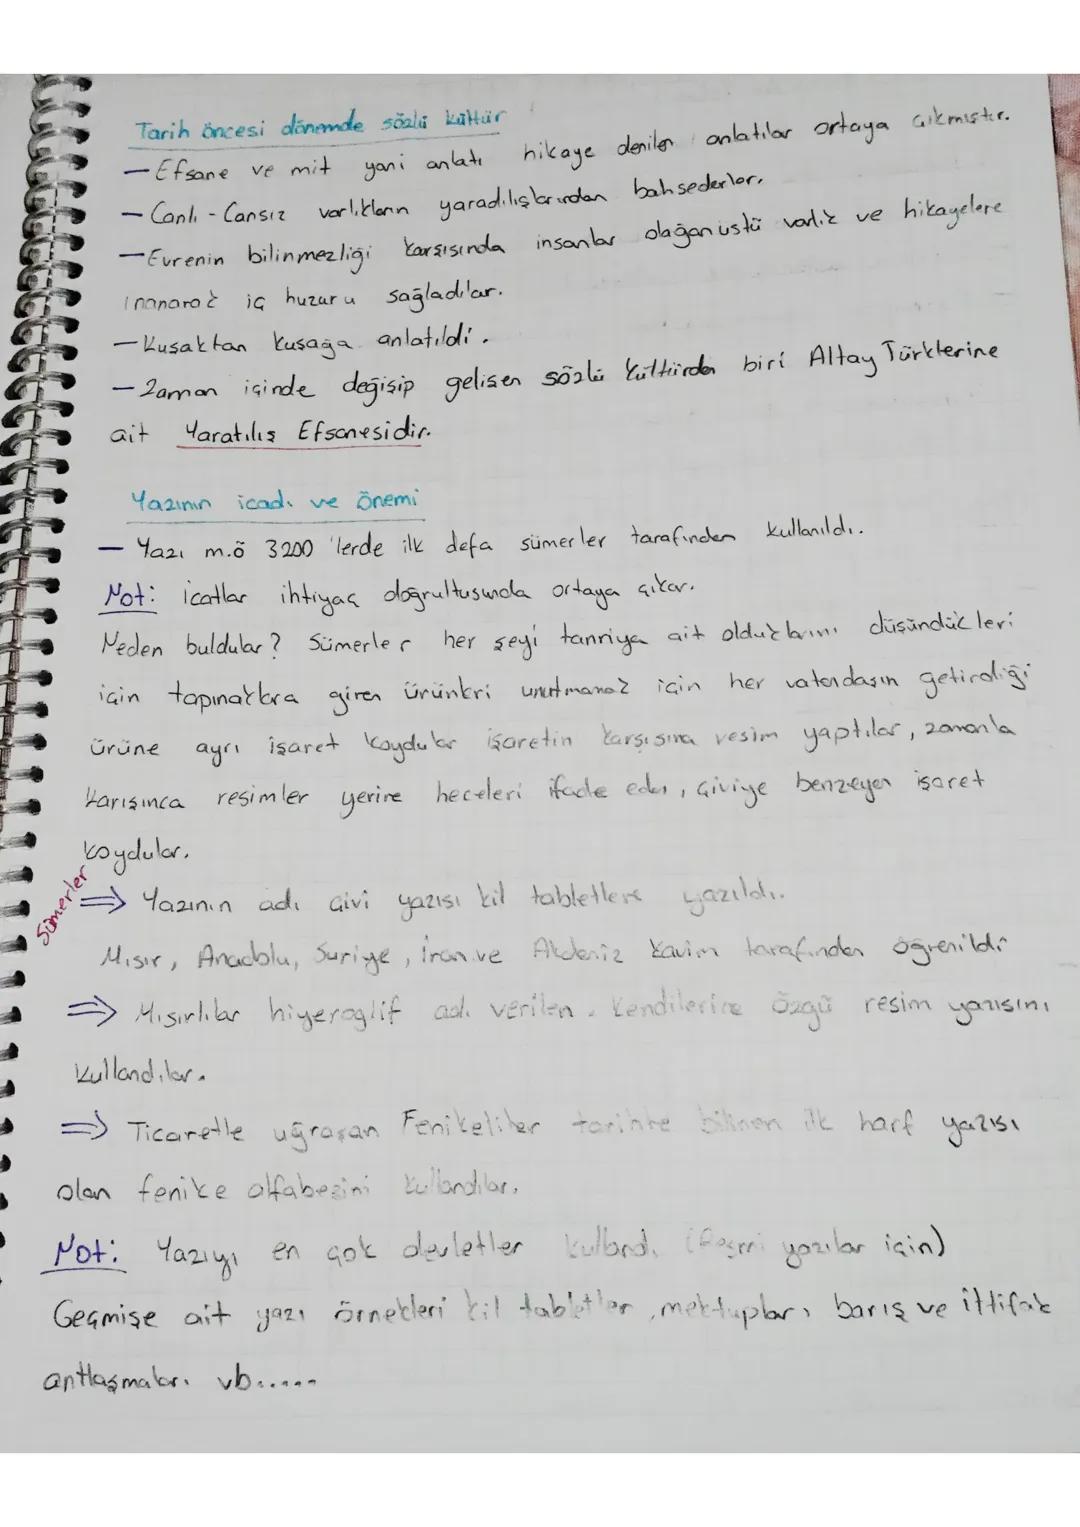 Tarih öncesi dönemde sözlü kültür
— Efsane ve mit yani anlatı hikaye denilen anlatılar ortaya çıkmıştır.
— Canlı - Cansız varlıkların yaradılışlarından bahsederler.
— Evrenin bilinmezliği karşısında insanlar olağanüstü varlık ve hikayelere
inanarak iç huzuru sağladılar.
— Kuşaktan kuşağa anlatıldı.
— Zaman içinde değişip gelişen sözlü kültürden biri Altay Türklerine
ait Yaratılış Efsanesidir.
Yazının icadı ve önemi
— Yazı m.ö 3200 'lerde ilk defa sümerler tarafından kullanıldı.
Not: icatlar ihtiyaç doğrultusunda ortaya çıkar.
Neden buldular? Sümerler her şeyi tanrıya ait olduklarını düşündükleri
için tapınaklara giren ürünleri unutmamak için her vatandaşın getirdiği
ürüne ayrı işaret koydular işaretin karşısına resim yaptılar, zamanla
karışınca resimler yerine heceleri ifade eden, çiviye benzeyen işaret
koydular.
Sümerler
⇒ Yazının adı çivi yazısı kil tabletlere yazıldı.
Mısır, Anadolu, Suriye, İran ve Akdeniz kavim tarafından öğrenildi
⇒ Mısırlılar hiyeroglif adı verilen. kendilerine özgü resim yazısını
kullandılar.
⇒ Ticaretle uğraşan Fenikeliler tarihte bilinen ilk harf yazısı
olan fenike alfabesini kullandılar.
Not: Yazıyı en çok devletler kullandı (Resmi yazılar için)
Geçmişe ait yazı örnekleri kil tabletler, mektupları, barış ve ittifak
antlaşmaları vb.....